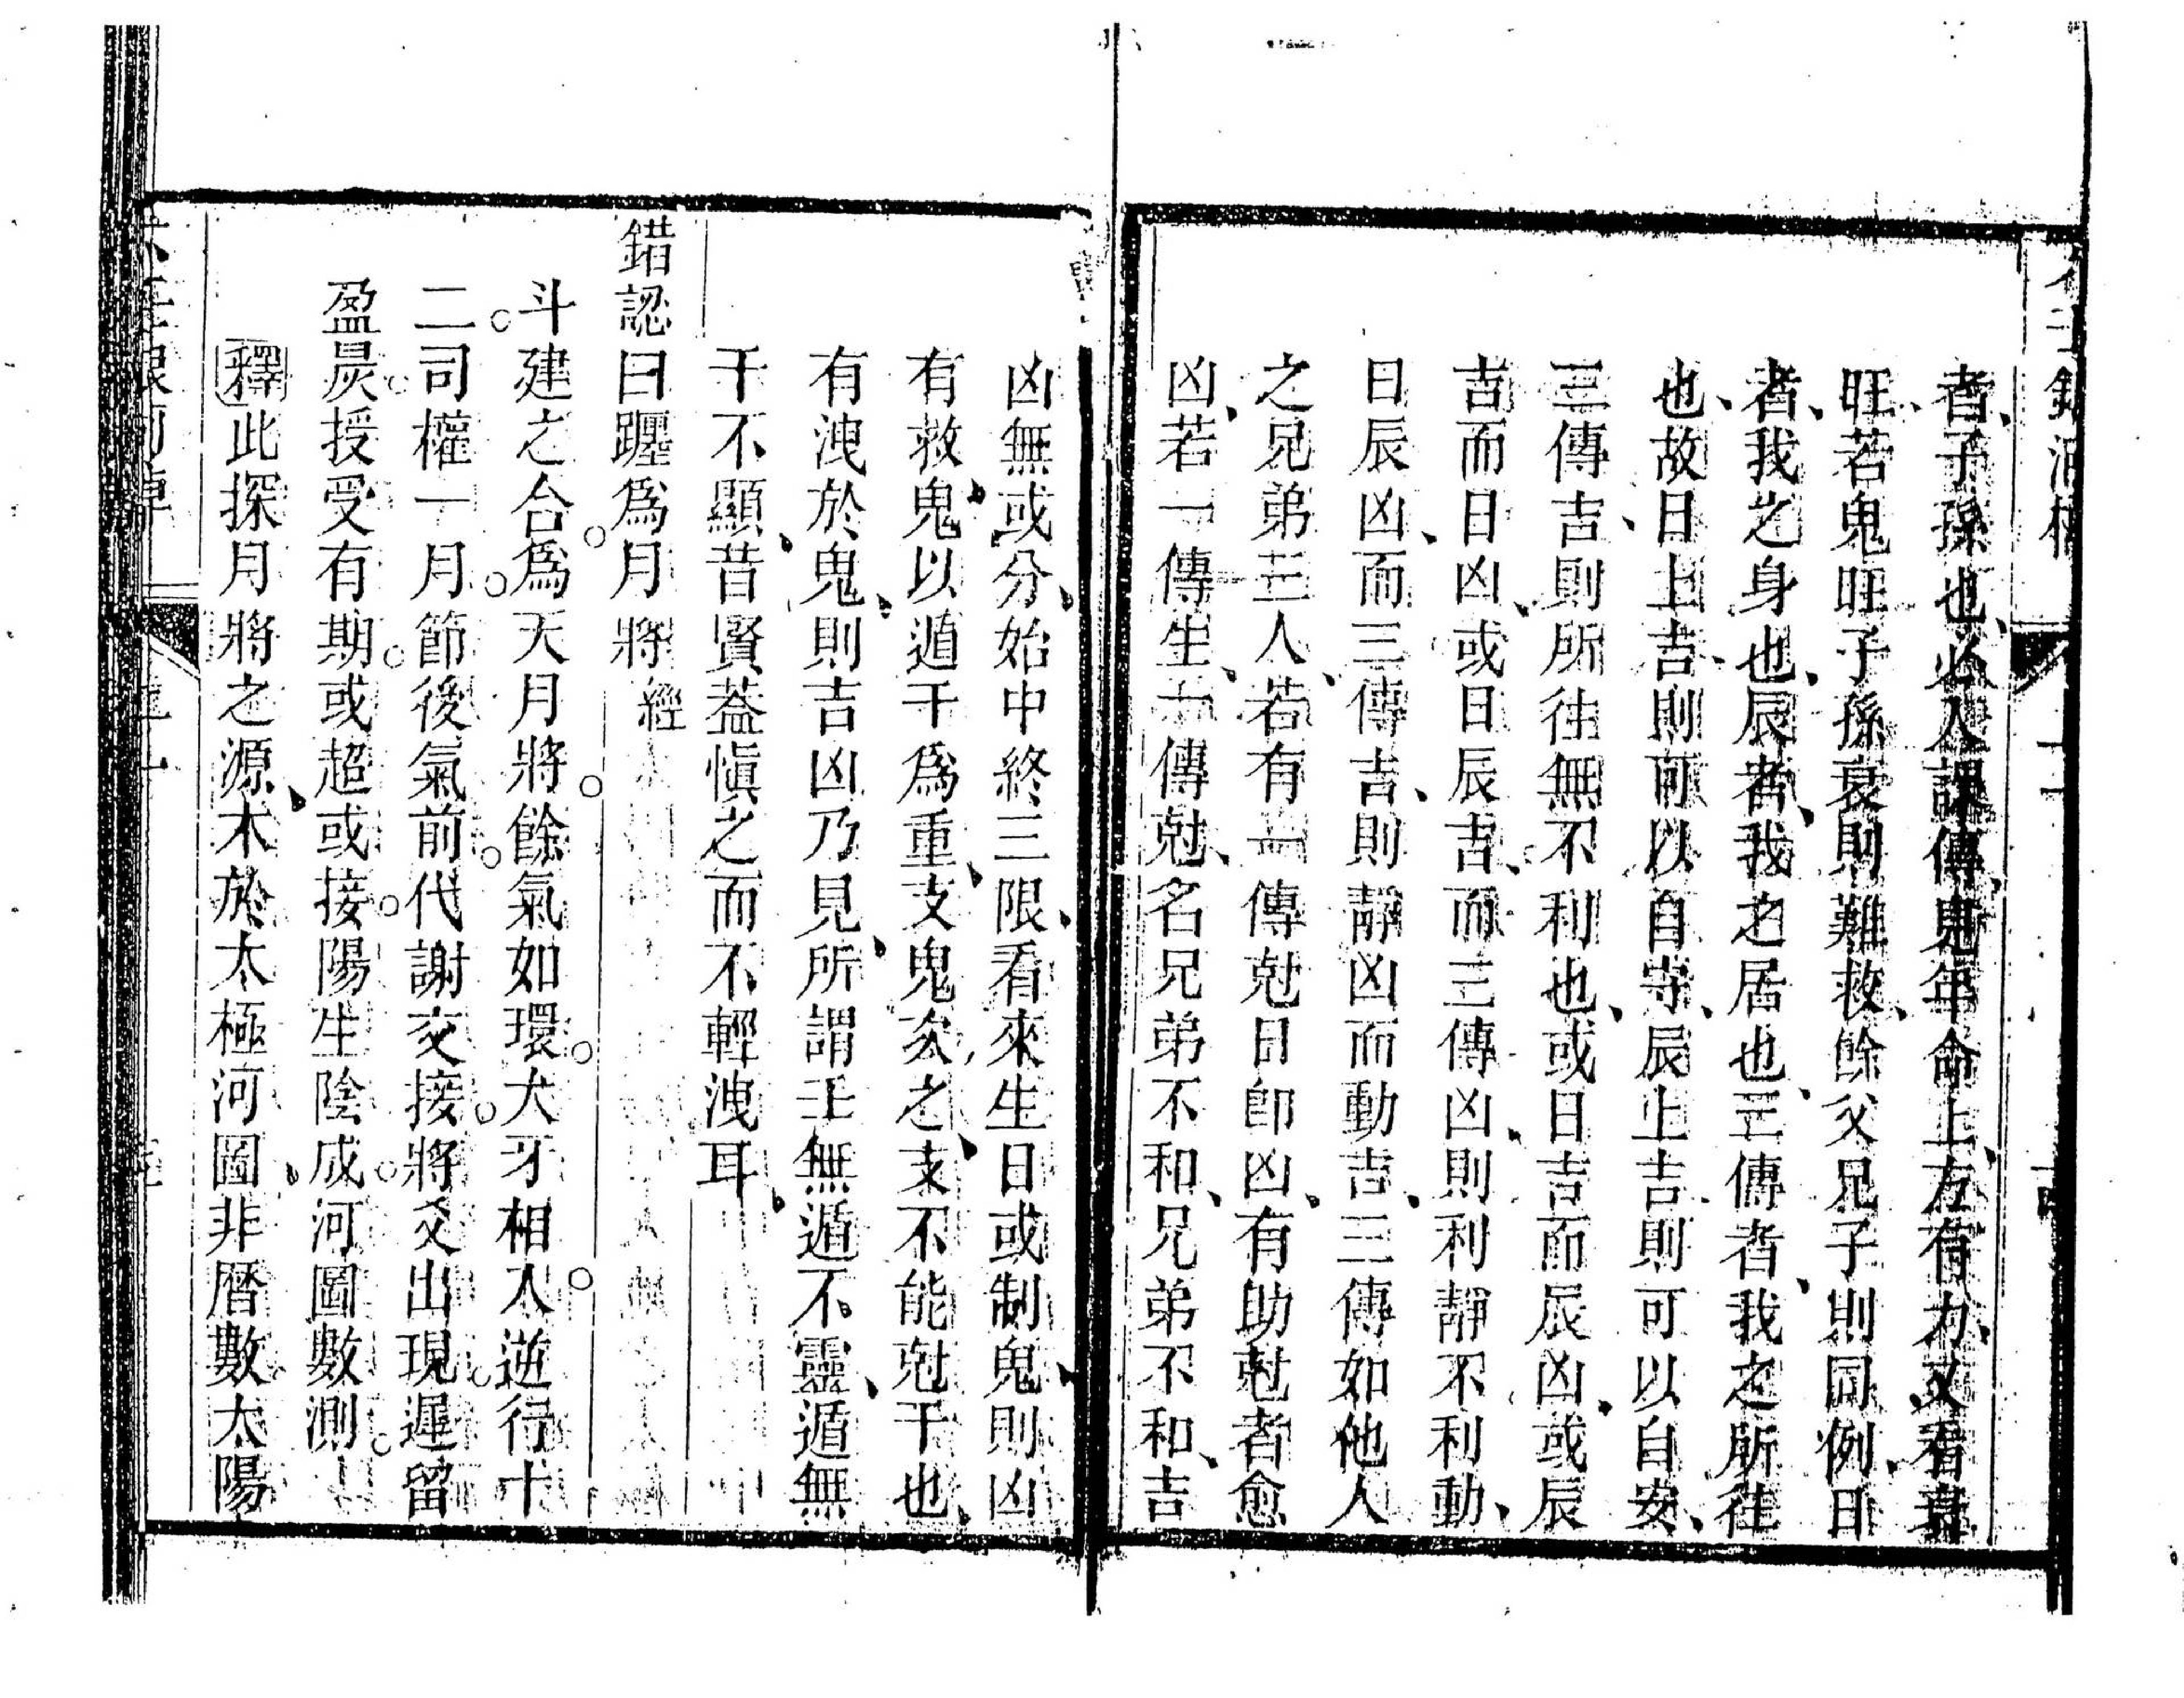 者、子孫也、必入課傳、鬼年命上、方有力、又看衰
旺、若鬼旺子孫衰則難救、餘父兄子則同例、日
者、我之身也、辰者、我之居也、三傳者、我之所往
也、故日上吉、則可以自守、辰上吉、則可以自安、
三傳吉、則所往無不利也、或日吉而辰凶、或辰
吉而日凶、或日辰吉、而三傳凶、則利靜不利動、
日辰凶、而三傳吉、則靜凶而動吉、三傳如他人
之兄弟三人、若有一傳尅日卽凶、有助尅者愈
凶、若一傳生、一傳尅、名兄弟不和、兄弟不和、吉
凶無或分、始中終三限、看來生日或制鬼、則凶
有救、鬼以遁干爲重、支鬼次之、支不能尅干也、
有洩於鬼、則吉凶乃見、所謂壬無遁不靈、遁無
干不顯、昔賢葢愼之而不輕洩耳、
錯認日躔爲月將經
斗建之合爲天月將餘氣如環犬牙相入逆行十
二司權一月節後氣前代謝交接將爻出現遲留
盈昃授受有期或超或接陽生陰成河圖數測
釋此探月將之源、本於太極河圖、非曆數太陽